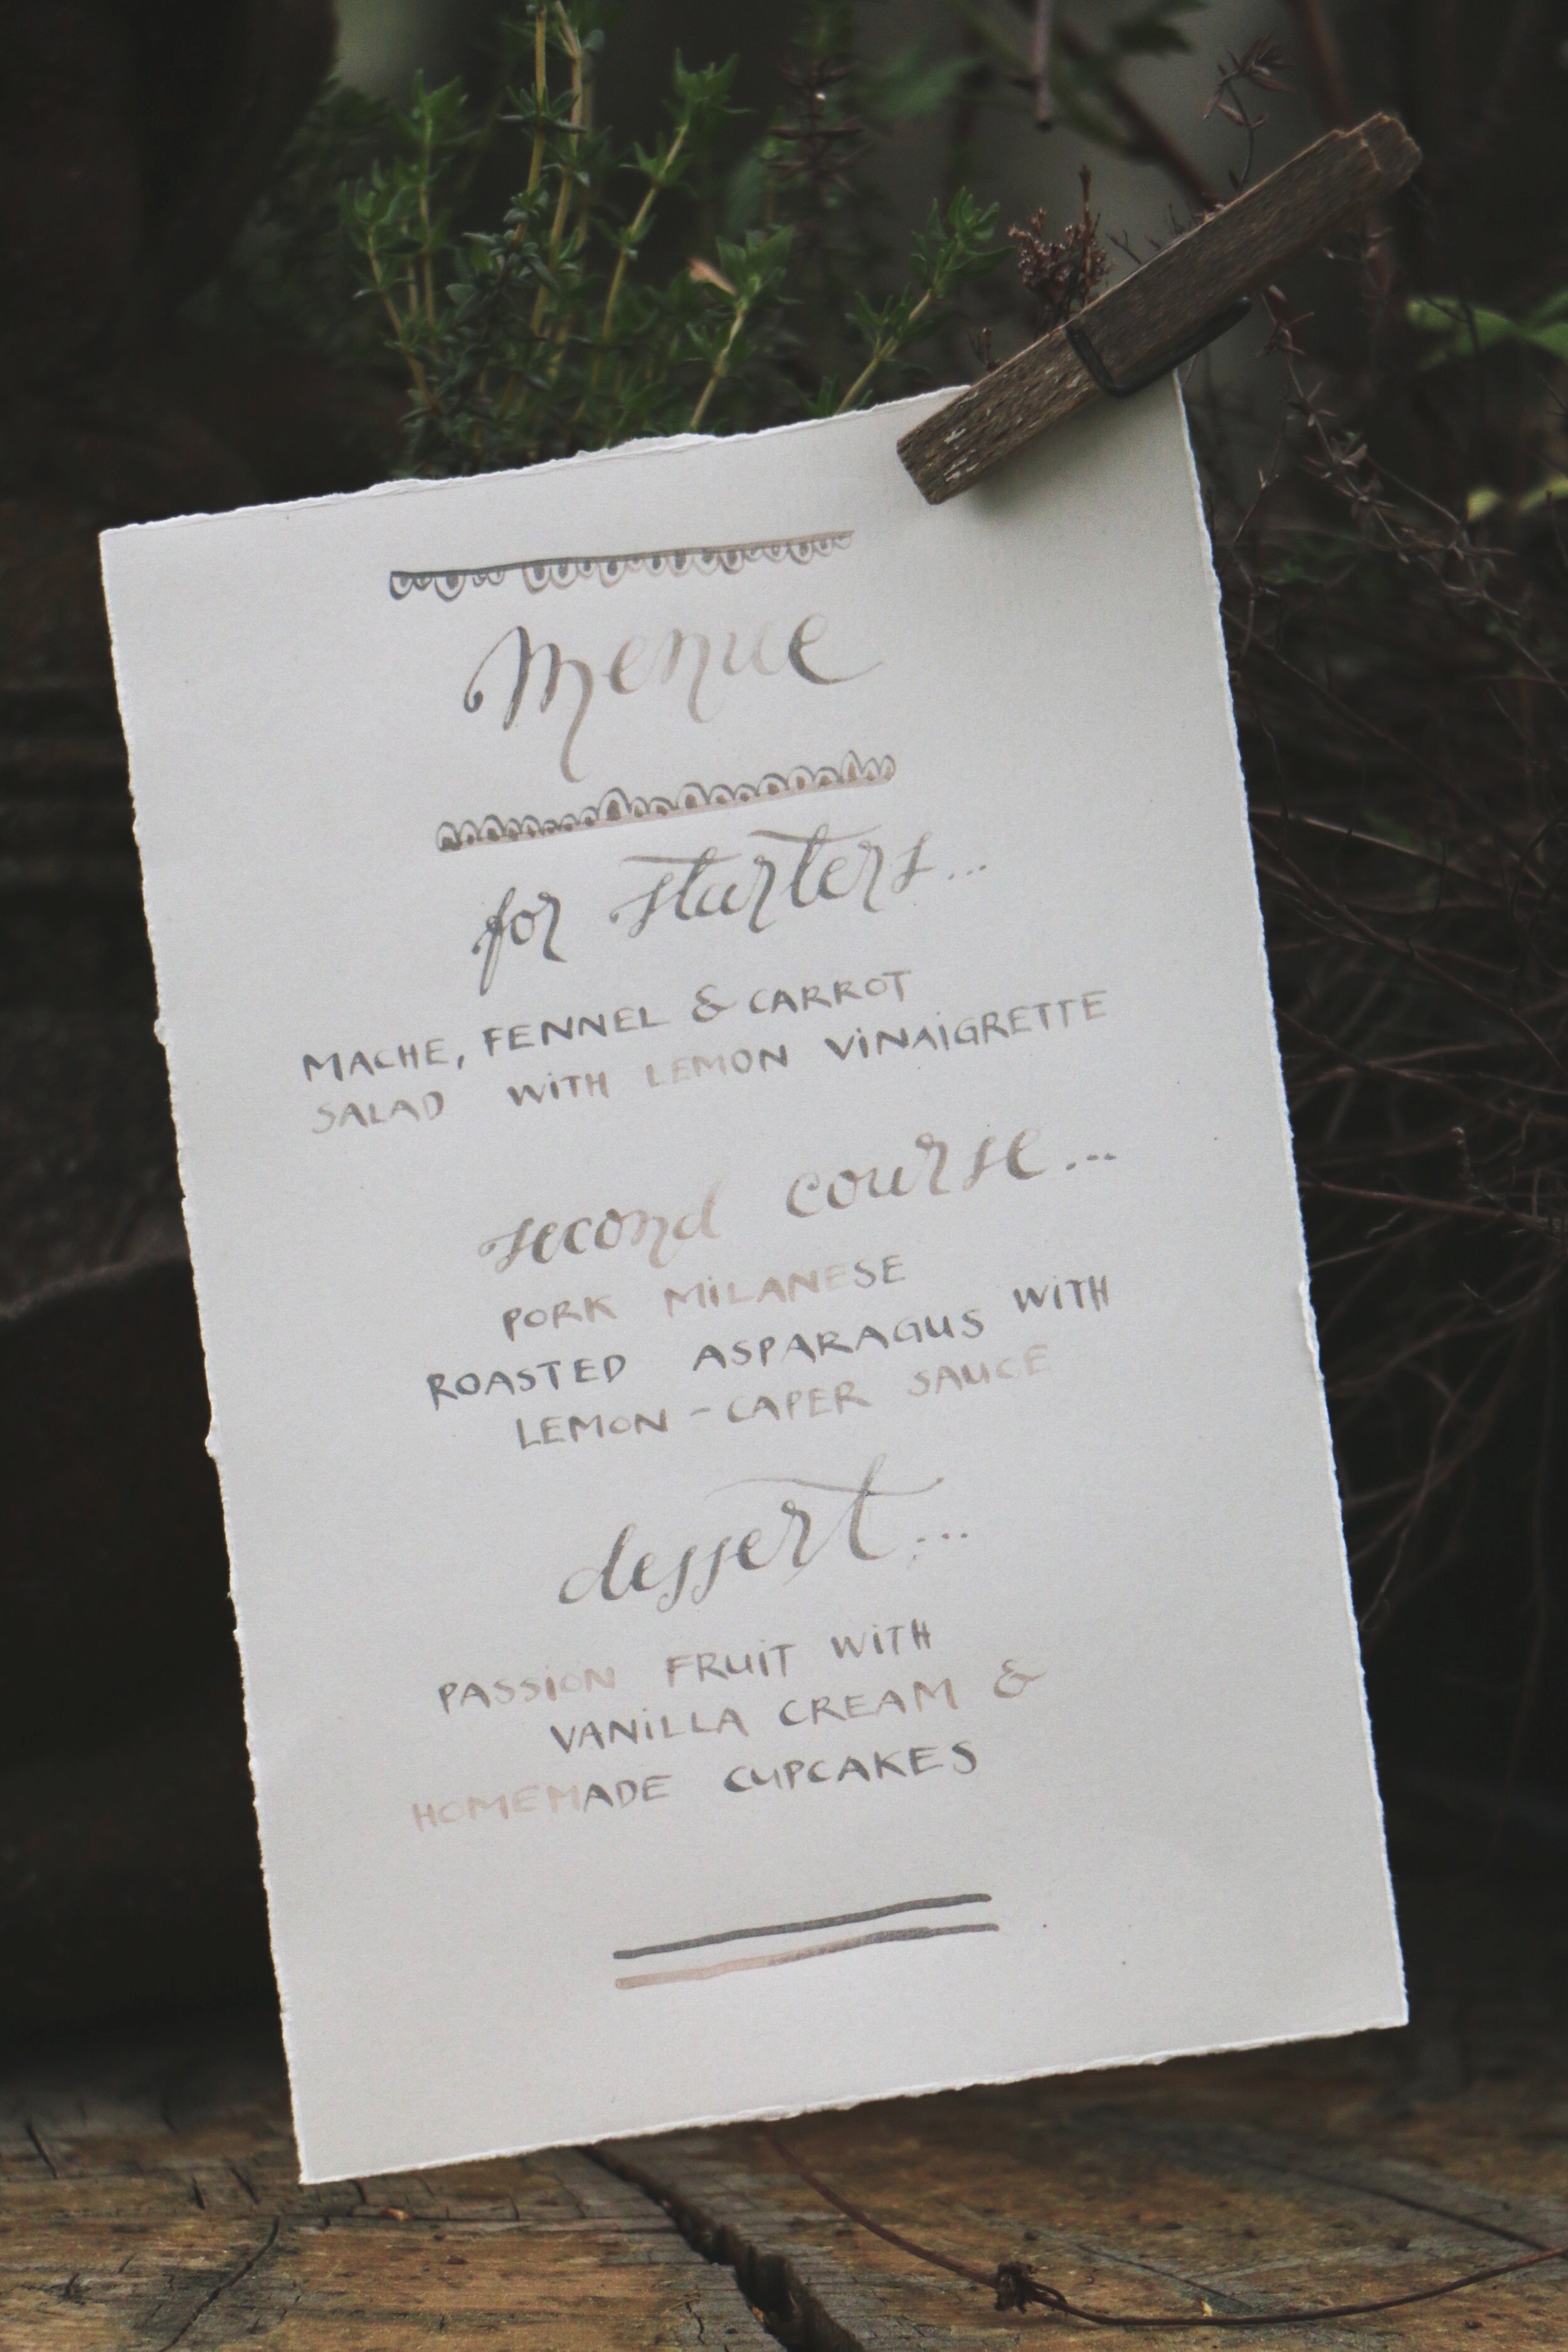 Menue
for starters...
MACHE, FENNEL & CARROT
SALAD WITH LEMON VINAIGRETTE
second course...
PORK MILANESE
ROASTED ASPARAGUS WITH
LEMON-CAPER SAUCE
dessert...
PASSION FRUIT WITH
VANILLA CREAM &
HOMEMADE CUPCAKES